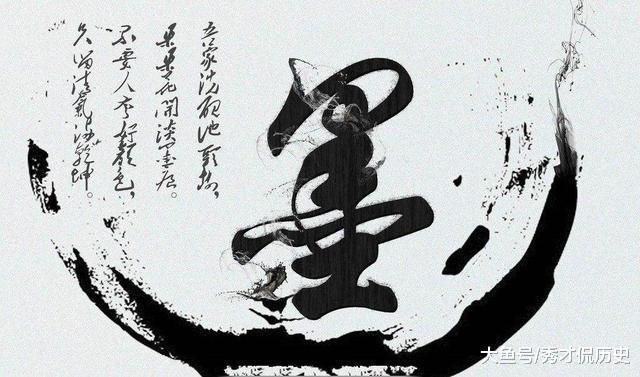 吾家洗硯池頭樹，
朵朵花開淡墨痕。
不要人夸好顏色，
只留清氣滿乾坤。
墨
大鱼号/秀才侃历史